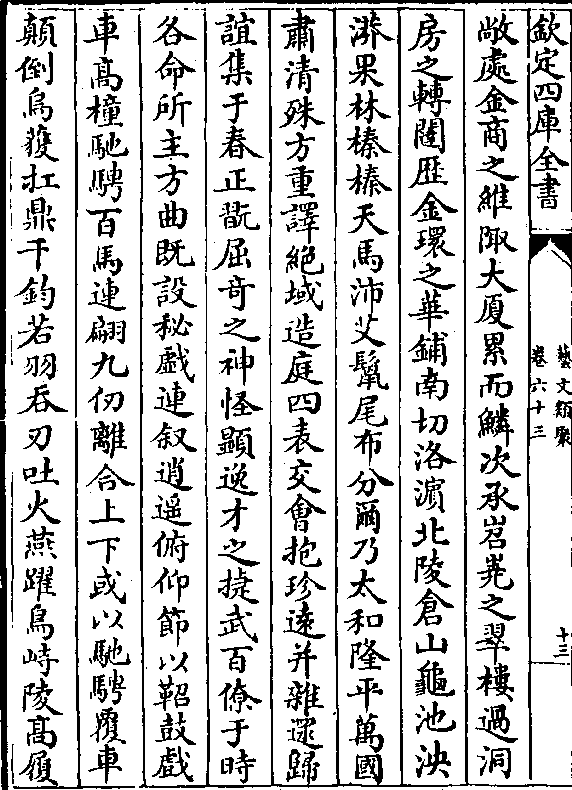 欽定四庫全書
藝文類聚
卷六十三
十三
敞處金商之維陬大厦累而鱗次承岧嶤之翠樓過洞
房之轉闥歴金環之華鋪南切洛濵北陵倉山龜池泱
漭果林榛榛天馬沛艾鬛尾布分爾乃太和隆平萬國
肅清殊方重譯絶域造庭四表交會抱珍逺并雜遝歸
誼集于春正翫屈奇之神怪顯逸才之捷武百僚于時
各命所主方曲既設秘戲連叙逍遥俯仰節以鞀鼓戲
車髙橦馳騁百馬連翩九仞離合上下或以馳騁覆車
顛倒烏獲扛鼎千鈞若羽吞刃吐火燕躍烏峙陵髙履